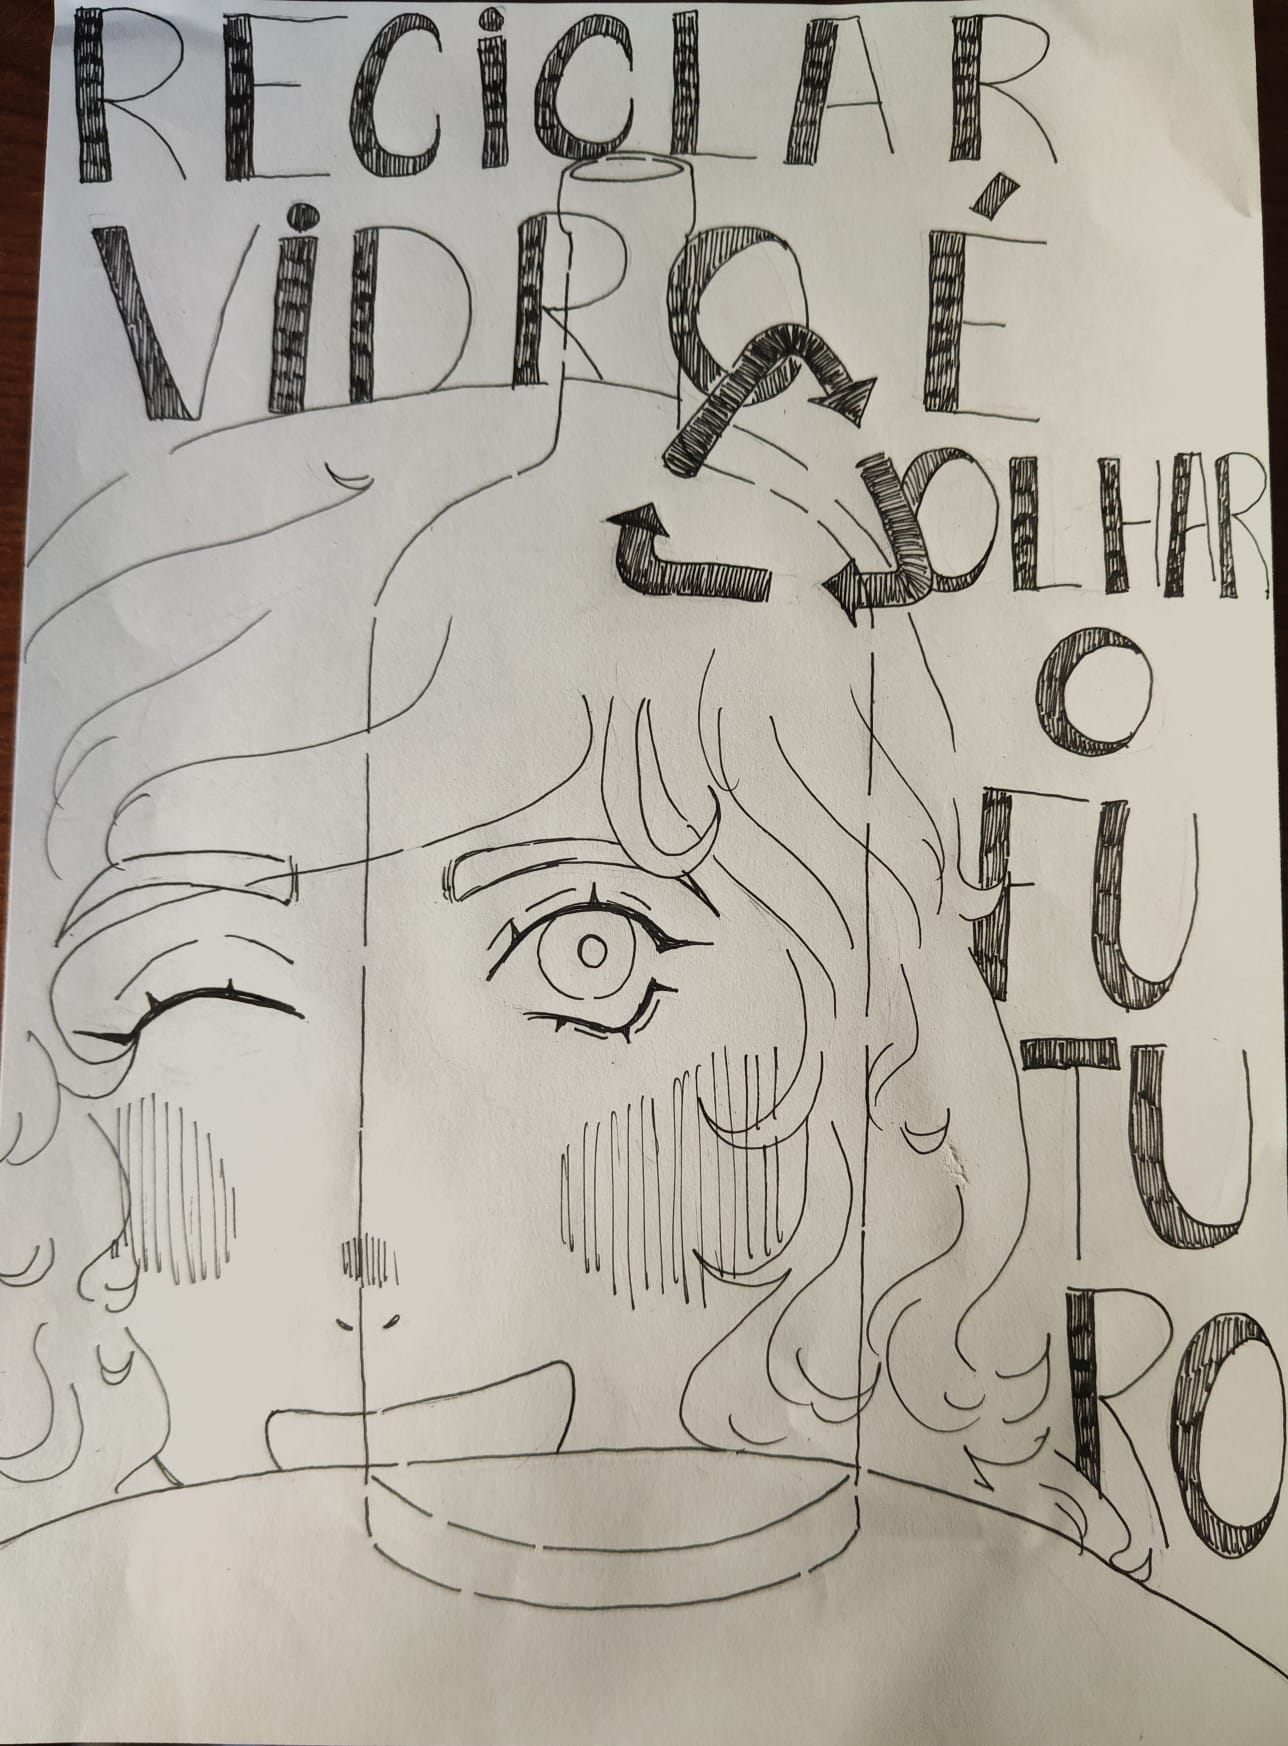 RECiCLAR
ViDRO É
OLHAR
O
FU
TU
RO